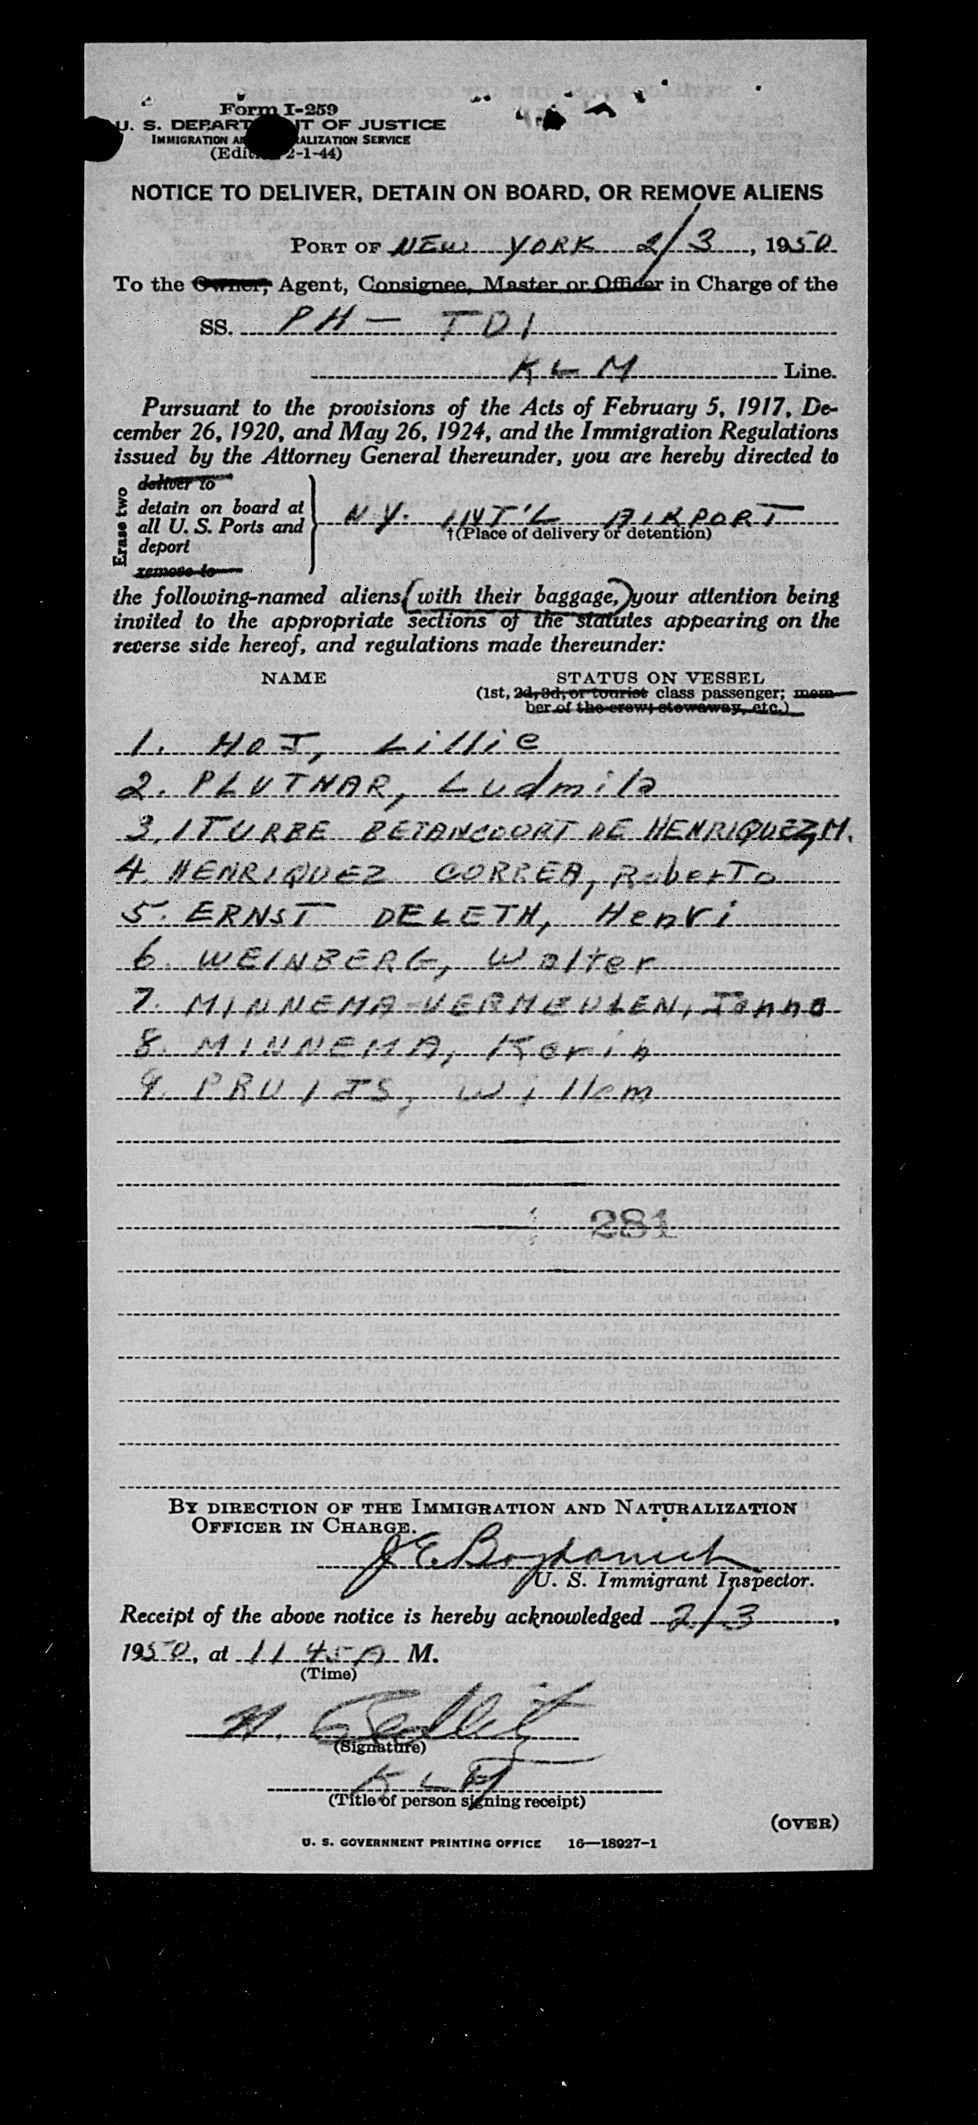 Form I-259
U. S. DEPARTMENT OF JUSTICE
IMMIGRATION AND NATURALIZATION SERVICE
(Edition 2-1-44)
NOTICE TO DELIVER, DETAIN ON BOARD, OR REMOVE ALIENS
PORT OF NEW YORK 2/3, 1950
To the Owner, Agent, Consignee, Master or Officer in Charge of the
SS. PH - TDI
KLM Line.
Pursuant to the provisions of the Acts of February 5, 1917, De-
cember 26, 1920, and May 26, 1924, and the Immigration Regulations
issued by the Attorney General thereunder, you are hereby directed to
Erase two
deliver to
detain on board at
all U. S. Ports and
deport
remove to
N.Y. INT'L AIRPORT
†(Place of delivery or detention)
the following-named aliens (with their baggage,) your attention being
invited to the appropriate sections of the statutes appearing on the
reverse side hereof, and regulations made thereunder:
NAME STATUS ON VESSEL
(1st, 2d, 3d, or tourist class passenger; mem-
ber of the crew; stowaway, etc.)
1. HOJ, Lillie
2. PLUTNAR, Ludmila
3. ITURBE BETANCOURT DE HENRIQUEZ, M.
4. HENRIQUEZ CORREA, Roberto
5. ERNST DELETH, Henri
6. WEINBERG, Walter
7. MINNEMA-VERMEULEN, Janna
8. MINNEMA, Karin
9. PRUIJS, Willem
281
BY DIRECTION OF THE IMMIGRATION AND NATURALIZATION
OFFICER IN CHARGE.
J E Bogdanich
U. S. Immigrant Inspector.
Receipt of the above notice is hereby acknowledged 2/3,
1950, at 11 45 A M.
(Time)
H.
(Signature)
KLM
(Title of person signing receipt)
(OVER)
U. S. GOVERNMENT PRINTING OFFICE 16—18927-1